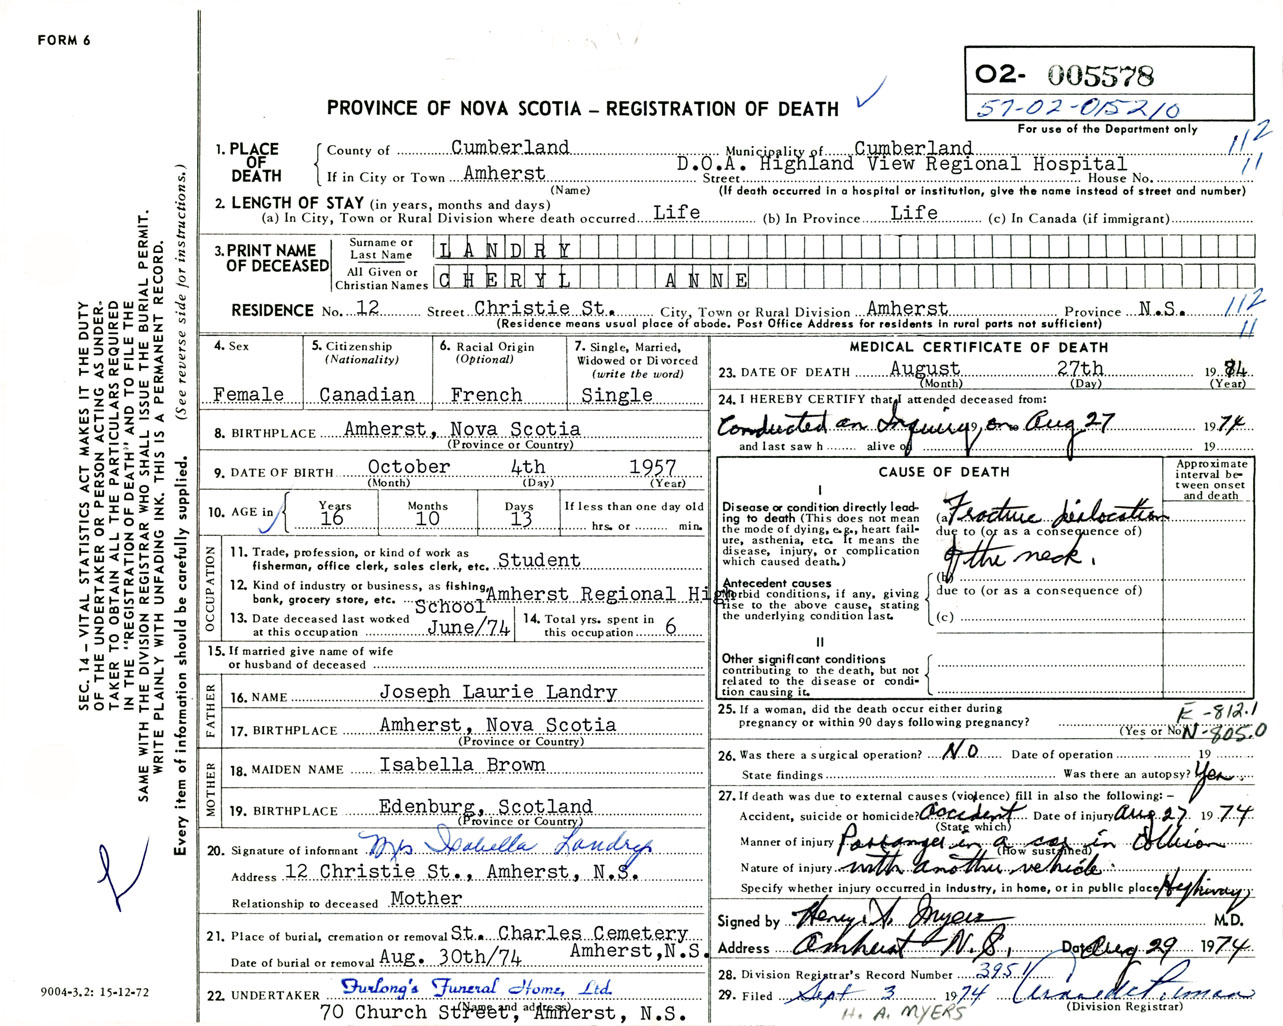 FORM 6
O2- 005578
57-02-015210
For use of the Department only
PROVINCE OF NOVA SCOTIA – REGISTRATION OF DEATH
1. PLACE OF DEATH
County of Cumberland Municipality of Cumberland 112
D.O.A. Highland View Regional Hospital 11
If in City or Town Amherst Street House No.
(Name) (If death occurred in a hospital or institution, give the name instead of street and number)
2. LENGTH OF STAY (in years, months and days)
(a) In City, Town or Rural Division where death occurred Life (b) In Province Life (c) In Canada (if immigrant)
3. PRINT NAME OF DECEASED
Surname or Last Name LANDRY
All Given or Christian Names CHERYL ANNE
RESIDENCE No. 12 Street Christie St. City, Town or Rural Division Amherst Province N.S. 112
(Residence means usual place of abode. Post Office Address for residents in rural parts not sufficient) 11
4. Sex
Female
5. Citizenship
(Nationality)
Canadian
6. Racial Origin
(Optional)
French
7. Single, Married,
Widowed or Divorced
(write the word)
Single
8. BIRTHPLACE Amherst, Nova Scotia
(Province or Country)
9. DATE OF BIRTH October 4th 1957
(Month) (Day) (Year)
10. AGE in
Years Months Days If less than one day old
16 10 13 hrs. or min.
OCCUPATION
11. Trade, profession, or kind of work as
fisherman, office clerk, sales clerk, etc. Student
12. Kind of industry or business, as fishing,
bank, grocery store, etc. Amherst Regional High
School
13. Date deceased last worked
at this occupation June/74
14. Total yrs. spent in
this occupation 6
15. If married give name of wife
or husband of deceased
FATHER
16. NAME Joseph Laurie Landry
17. BIRTHPLACE Amherst, Nova Scotia
(Province or Country)
MOTHER
18. MAIDEN NAME Isabella Brown
19. BIRTHPLACE Edenburg, Scotland
(Province or Country)
20. Signature of informant Mrs Isabella Landry
Address 12 Christie St., Amherst, N.S.
Relationship to deceased Mother
21. Place of burial, cremation or removal St. Charles Cemetery
Amherst, N.S.
Date of burial or removal Aug. 30th/74
22. UNDERTAKER Furlong's Funeral Home, Ltd.
(Name and address)
70 Church Street, Amherst, N.S.
MEDICAL CERTIFICATE OF DEATH
23. DATE OF DEATH August 27th 1974
(Month) (Day) (Year)
24. I HEREBY CERTIFY that I attended deceased from:
Conducted an Inquiry, on Aug 27 1974
and last saw h alive on 19
CAUSE OF DEATH
Approximate
interval be-
tween onset
and death
I
Disease or condition directly lead-
ing to death (This does not mean
the mode of dying, e.g., heart fail-
ure, asthenia, etc. It means the
disease, injury, or complication
which caused death.)
(a) Fracture dislocation
due to (or as a consequence of)
of the neck.
Antecedent causes
Morbid conditions, if any, giving
rise to the above cause, stating
the underlying condition last.
(b)
due to (or as a consequence of)
(c)
II
Other significant conditions
contributing to the death, but not
related to the disease or condi-
tion causing it.
25. If a woman, did the death occur either during
pregnancy or within 90 days following pregnancy?
(Yes or No)
E-812.1
N-805.0
26. Was there a surgical operation? NO Date of operation 19
State findings Was there an autopsy? Yes
27. If death was due to external causes (violence) fill in also the following: –
Accident, suicide or homicide? accident Date of injury Aug 27 1974
(State which)
Manner of injury Passanger in a car in Collision
(How sustained)
Nature of injury with another vehicle
Specify whether injury occurred in industry, in home, or in public place Highway
Signed by Henry A. Myers M.D.
Address Amherst N.S. Date Aug 29 1974
28. Division Registrar's Record Number 3951
29. Filed Sept 3 1974
(Division Registrar)
H. A. MYERS
SEC. 14 – VITAL STATISTICS ACT MAKES IT THE DUTY
OF THE UNDERTAKER OR PERSON ACTING AS UNDER-
TAKER TO OBTAIN ALL THE PARTICULARS REQUIRED
IN THE "REGISTRATION OF DEATH" AND TO FILE THE
SAME WITH THE DIVISION REGISTRAR WHO SHALL ISSUE THE BURIAL PERMIT.
WRITE PLAINLY WITH UNFADING INK. THIS IS A PERMANENT RECORD.
Every item of information should be carefully supplied. (See reverse side for instructions.)
9004-3.2: 15-12-72